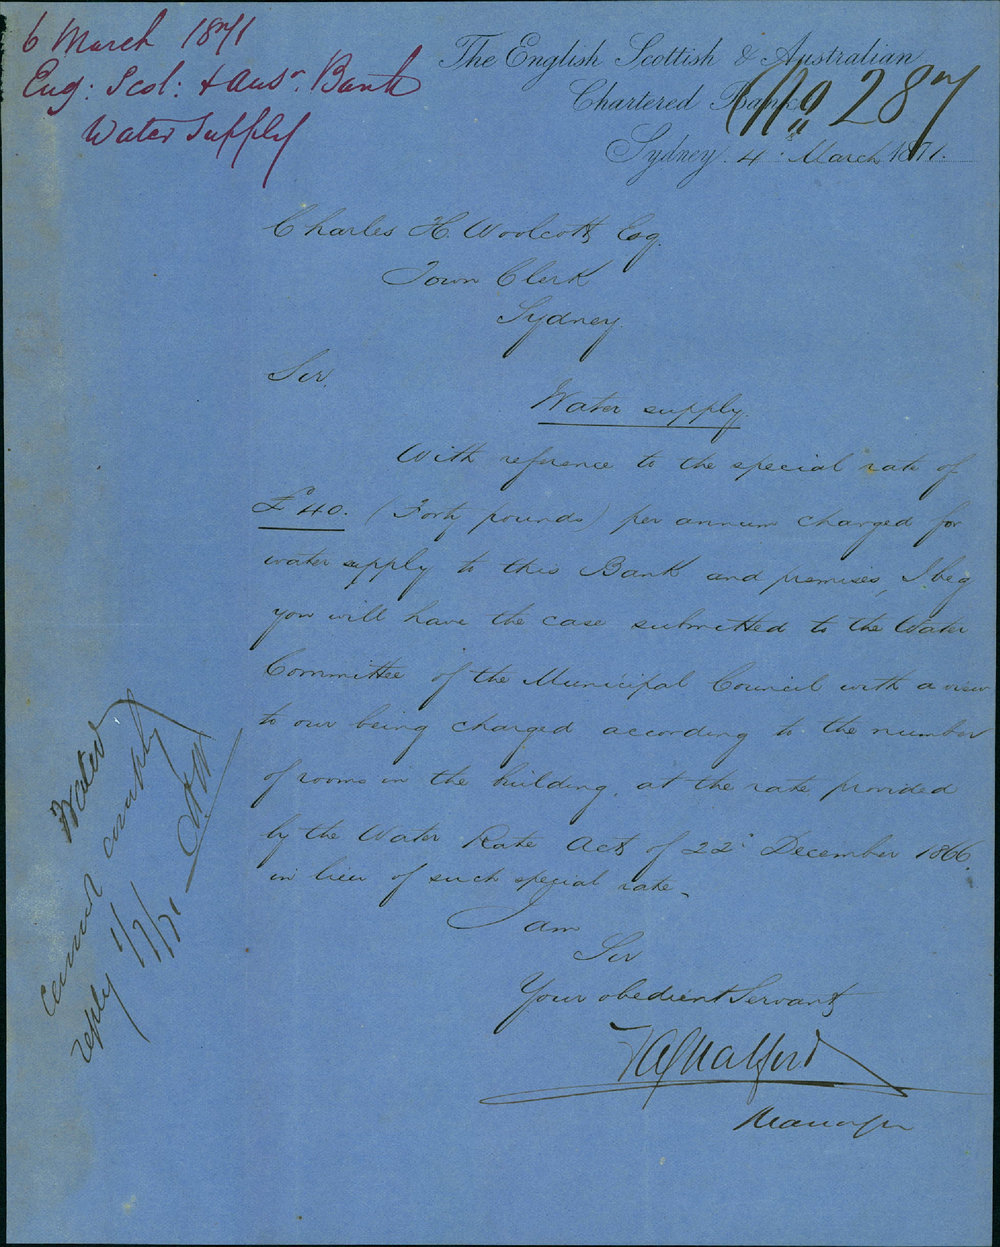 6 March 1871
Eng: Scot: & Ausn. Bank
Water Supply
The English Scottish & Australian
Chartered Bank
No 287
Sydney 4 March 1871.
Charles H. Woolcott Esq.
Town Clerk
Sydney.
Sir.
Water supply.
With reference to the special rate of
£40. (Forty pounds) per annum charged for
water supply to this Bank and premises, I beg
you will have the case submitted to the Water
Committee of the Municipal Council with a view
to our being charged according to the number
of rooms in the building, at the rate provided
by the Water Rate Act of 22d December 1866.
in lieu of such special rate.
I am
Sir
Your obedient Servant
Manager
Water
cannot comply
reply